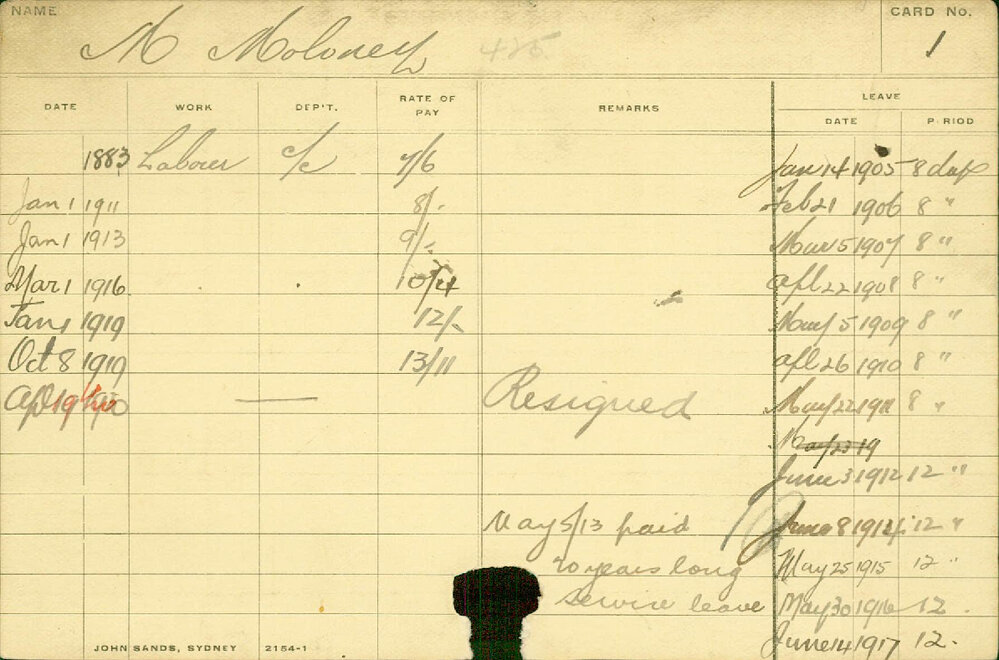 NAME
M Moloney 425.
CARD No.
1
DATE WORK DEP'T. RATE OF PAY REMARKS LEAVE
DATE PERIOD
1883 Laborer c/c 7/6 Jan 14 1905 8 days
Jan 1 1911 8/- Feb 21 1906 8 "
Jan 1 1913 9/- Mar 5 1907 8 "
Mar 1 1916 10/4 Apl 22 1908 8 "
Jan 1 1919 12/- 5 1909 8 "
Oct 8 1919 13/11 Apl 26 1910 8 "
Apl 19 Resigned May 22 1911 8 "
May 23 19
June 3 1912 12 "
May 5/13 paid June 8 1914 12 "
20 years long May 25 1915 12 "
service leave May 30 1916 12 .
June 14 1917 12 .
JOHN SANDS, SYDNEY 2154-1